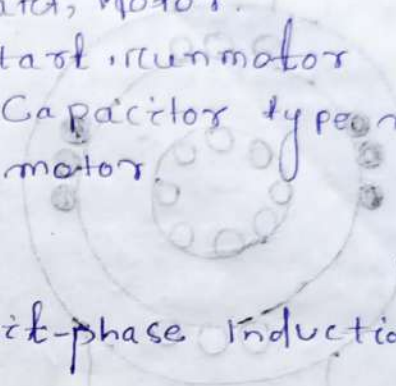 motor.
start, run motor
Capacitor type
motor.
it-phase Inductio